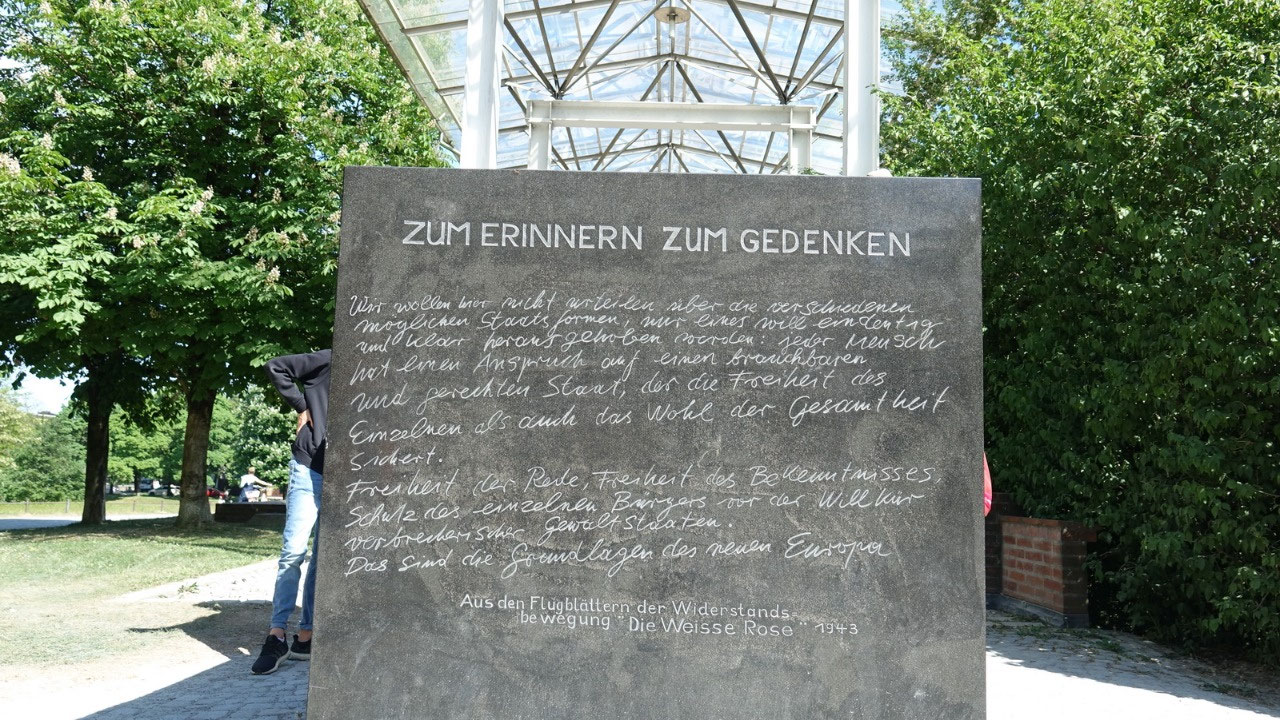 ZUM ERINNERN ZUM GEDENKEN
Wir wollen hier nicht urteilen über die verschiedenen
möglichen Staatsformen, nur eines will eindeutig
und klar herausgehoben werden: jeder Mensch
hat einen Anspruch auf einen brauchbaren
und gerechten Staat, der die Freiheit des
Einzelnen als auch das Wohl der Gesamtheit
sichert.
Freiheit der Rede, Freiheit des Bekenntnisses
Schutz des einzelnen Bürgers vor der Willkür
verbrecherischer Gewaltstaaten.
Das sind die Grundlagen des neuen Europa
Aus den Flugblättern der Widerstands-
bewegung "Die Weisse Rose" 1943